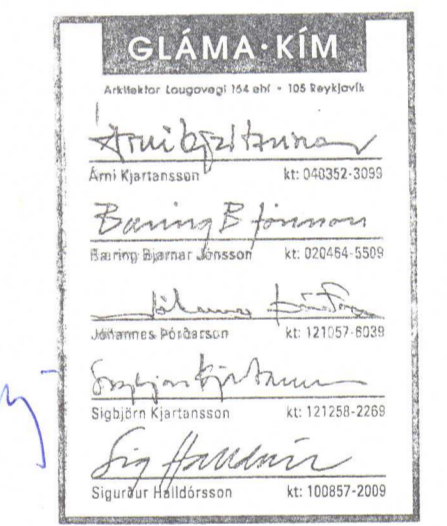 GLÁMA·KÍM
Arkitektar Laugavegi 164 ehf • 105 Reykjavík
Árni Kjartansson
Árni Kjartansson kt: 040352-3099
Bæring B Jónsson
Bæring Bjarnar Jónsson kt: 020464-5509
Jóhannes Þórðarson kt: 121057-6039
Sigbjörn Kjartansson
Sigbjörn Kjartansson kt: 121258-2269
Sig Halldórs
Sigurður Halldórsson kt: 100857-2009